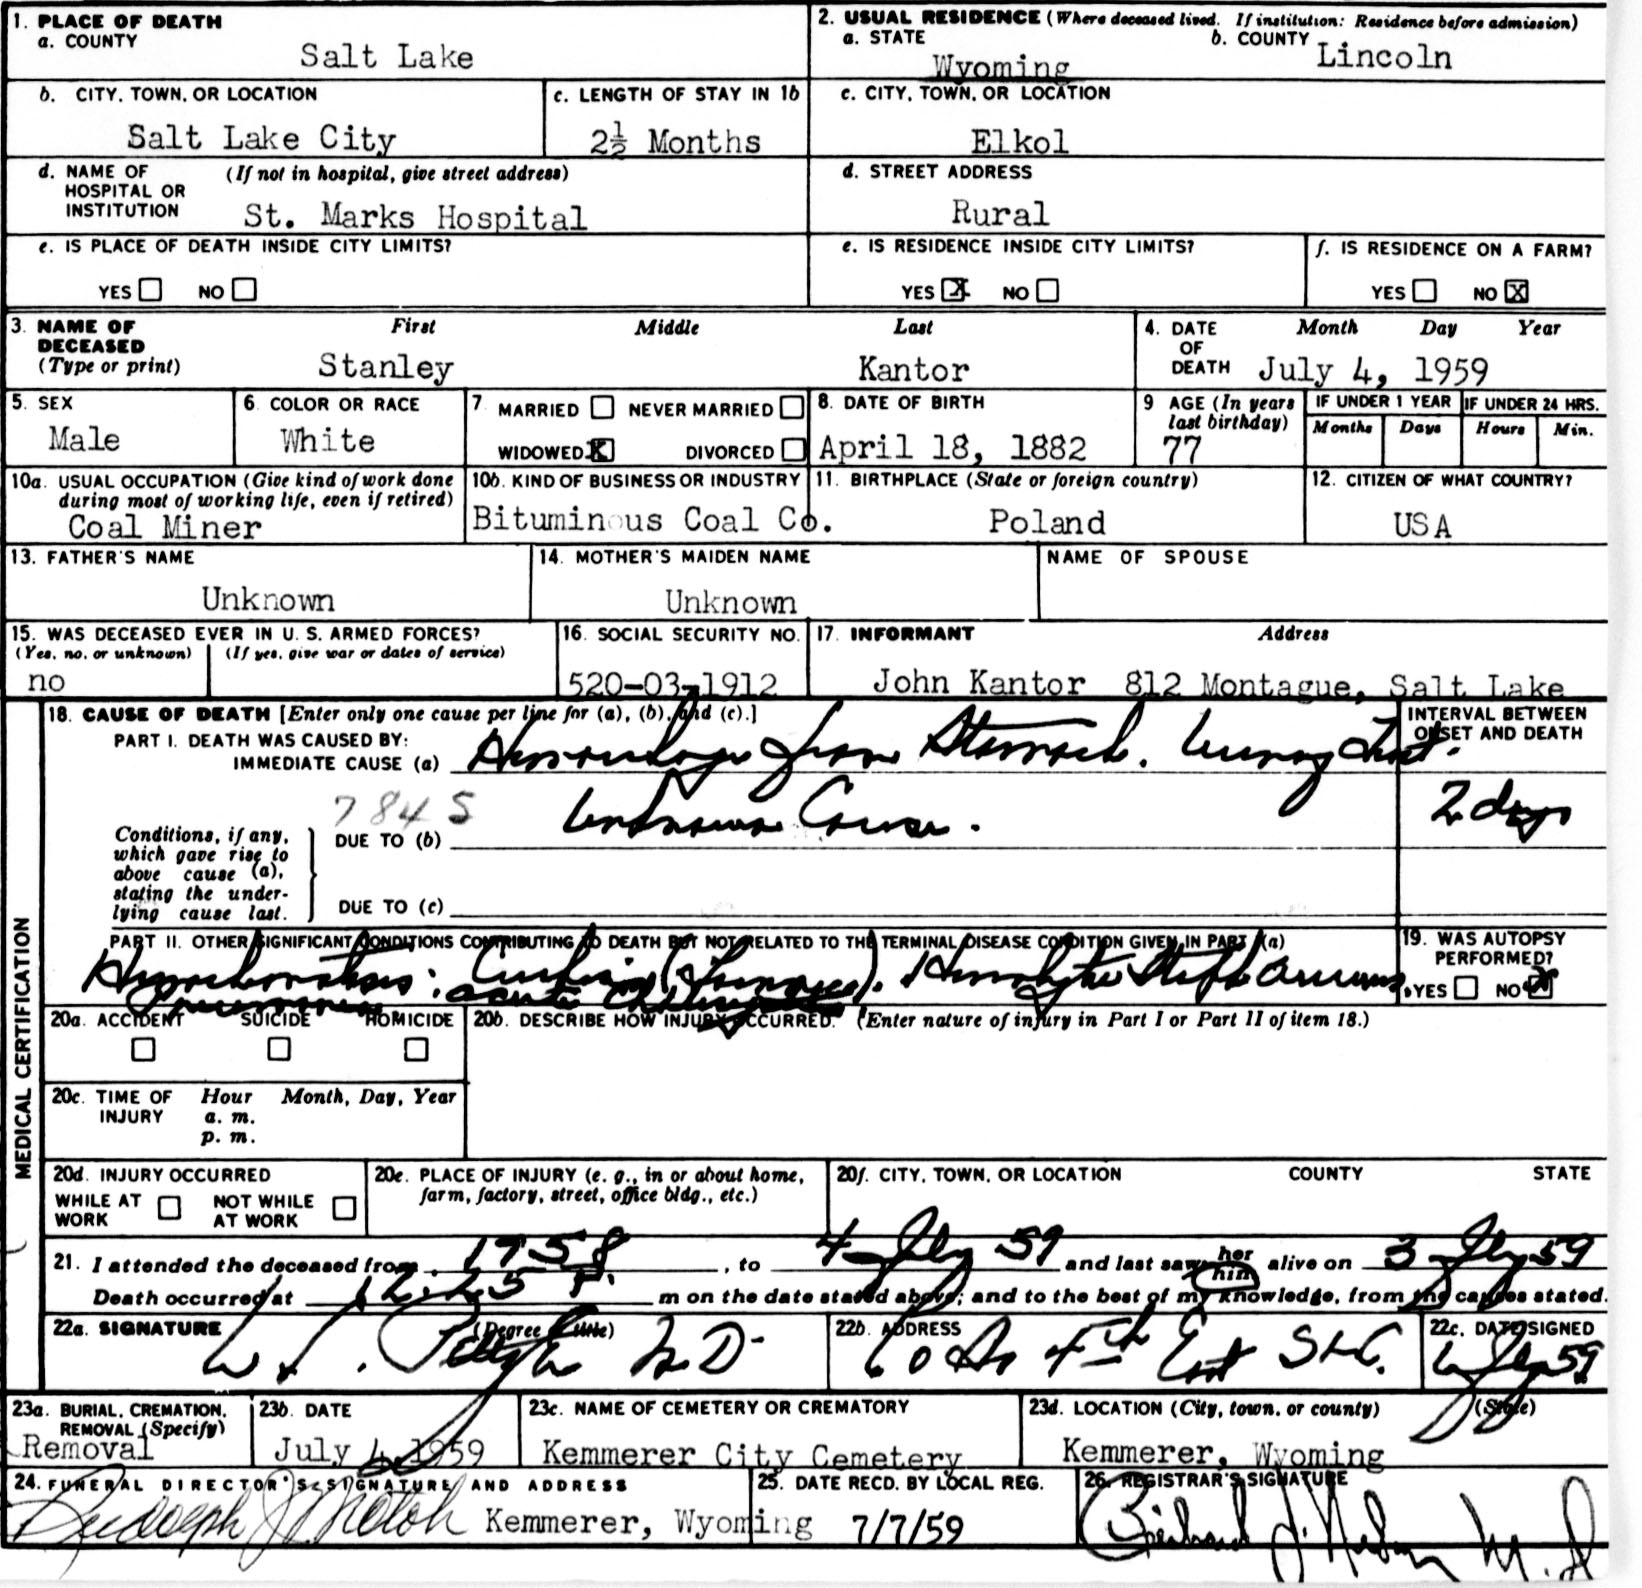 1. PLACE OF DEATH
a. COUNTY
Salt Lake
2. USUAL RESIDENCE (Where deceased lived. If institution: Residence before admission)
a. STATE
Wyoming
b. COUNTY
Lincoln
b. CITY, TOWN, OR LOCATION
Salt Lake City
c. LENGTH OF STAY IN 1b
2½ Months
c. CITY, TOWN, OR LOCATION
Elkol
d. NAME OF HOSPITAL OR INSTITUTION
(If not in hospital, give street address)
St. Marks Hospital
d. STREET ADDRESS
Rural
e. IS PLACE OF DEATH INSIDE CITY LIMITS?
YES NO
e. IS RESIDENCE INSIDE CITY LIMITS?
YES X NO
f. IS RESIDENCE ON A FARM?
YES NO X
3. NAME OF DECEASED
(Type or print)
First Middle Last
Stanley Kantor
4. DATE OF DEATH
Month Day Year
July 4, 1959
5. SEX
Male
6. COLOR OR RACE
White
7. MARRIED NEVER MARRIED
WIDOWED X DIVORCED
8. DATE OF BIRTH
April 18, 1882
9 AGE (In years last birthday)
77
IF UNDER 1 YEAR
Months Days
IF UNDER 24 HRS.
Hours Min.
10a. USUAL OCCUPATION (Give kind of work done during most of working life, even if retired)
Coal Miner
10b. KIND OF BUSINESS OR INDUSTRY
Bituminous Coal Co.
11. BIRTHPLACE (State or foreign country)
Poland
12. CITIZEN OF WHAT COUNTRY?
USA
13. FATHER'S NAME
Unknown
14. MOTHER'S MAIDEN NAME
Unknown
NAME OF SPOUSE
15. WAS DECEASED EVER IN U. S. ARMED FORCES?
(Yes, no, or unknown) (If yes, give war or dates of service)
no
16. SOCIAL SECURITY NO.
520-03-1912
17. INFORMANT Address
John Kantor 812 Montague, Salt Lake
MEDICAL CERTIFICATION
18. CAUSE OF DEATH [Enter only one cause per line for (a), (b), and (c).]
PART I. DEATH WAS CAUSED BY:
IMMEDIATE CAUSE (a)
Hemorrhage from Stomach.
INTERVAL BETWEEN ONSET AND DEATH
2 days
7845
Unknown Cause.
Conditions, if any, which gave rise to above cause (a), stating the underlying cause last.
DUE TO (b)
DUE TO (c)
PART II. OTHER SIGNIFICANT CONDITIONS CONTRIBUTING TO DEATH BUT NOT RELATED TO THE TERMINAL DISEASE CONDITION GIVEN IN PART I (a)
Hemochromatosis: Hemolytic Staph Aureus
pneumonia; acute
19. WAS AUTOPSY PERFORMED?
YES NO X
20a. ACCIDENT SUICIDE HOMICIDE
20b. DESCRIBE HOW INJURY OCCURRED. (Enter nature of injury in Part I or Part II of item 18.)
20c. TIME OF INJURY
Hour Month, Day, Year
a. m.
p. m.
20d. INJURY OCCURRED
WHILE AT WORK NOT WHILE AT WORK
20e. PLACE OF INJURY (e. g., in or about home, farm, factory, street, office bldg., etc.)
20f. CITY, TOWN, OR LOCATION COUNTY STATE
21. I attended the deceased from 1958, to 4 July 59 and last saw her him alive on 3 July 59
Death occurred at 12:25 P. m on the date stated above; and to the best of my knowledge, from the causes stated.
22a. SIGNATURE (Degree or title)
M D
22b. ADDRESS
60 So 4th East SLC.
22c. DATE SIGNED
6 July 59
23a. BURIAL, CREMATION, REMOVAL (Specify)
Removal
23b. DATE
July 4, 1959
23c. NAME OF CEMETERY OR CREMATORY
Kemmerer City Cemetery
23d. LOCATION (City, town, or county) (State)
Kemmerer, Wyoming
24. FUNERAL DIRECTOR'S SIGNATURE AND ADDRESS
Rudolph J. Kemmerer, Wyoming
25. DATE RECD. BY LOCAL REG.
7/7/59
26. REGISTRAR'S SIGNATURE
Richard J. Nelson M.D